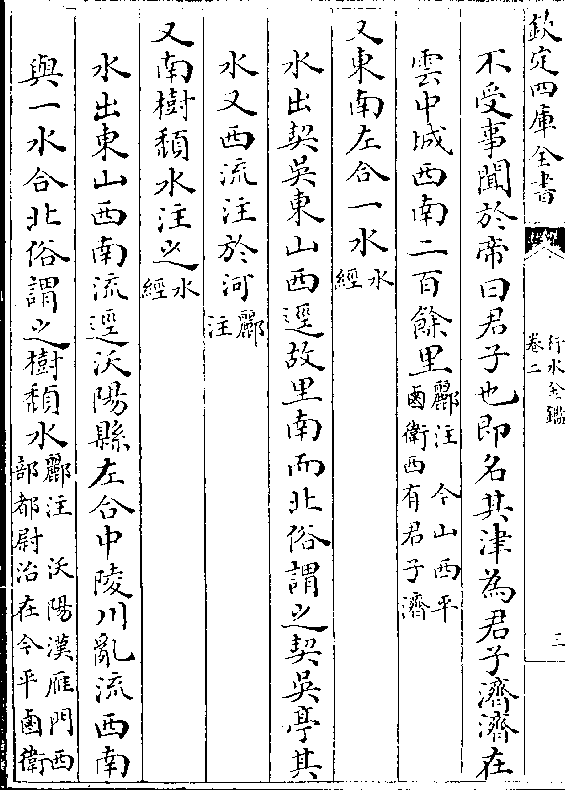 欽定四庫全書
行水金鑑
卷二
三
不受事聞於帝曰君子也即名其津為君子濟濟在
雲中城西南二百餘里酈注　今山西平
鹵衛西有君子濟
又東南左合一水水
經
水出契吳東山西逕故里南而北俗謂之契吳亭其
水又西流注於河酈
注
又南樹頹水注之水
經
水出東山西南流逕沃陽縣左合中陵川亂流西南
與一水合北俗謂之樹頹水酈注　沃陽漢雁門西
部都尉治在今平鹵衛